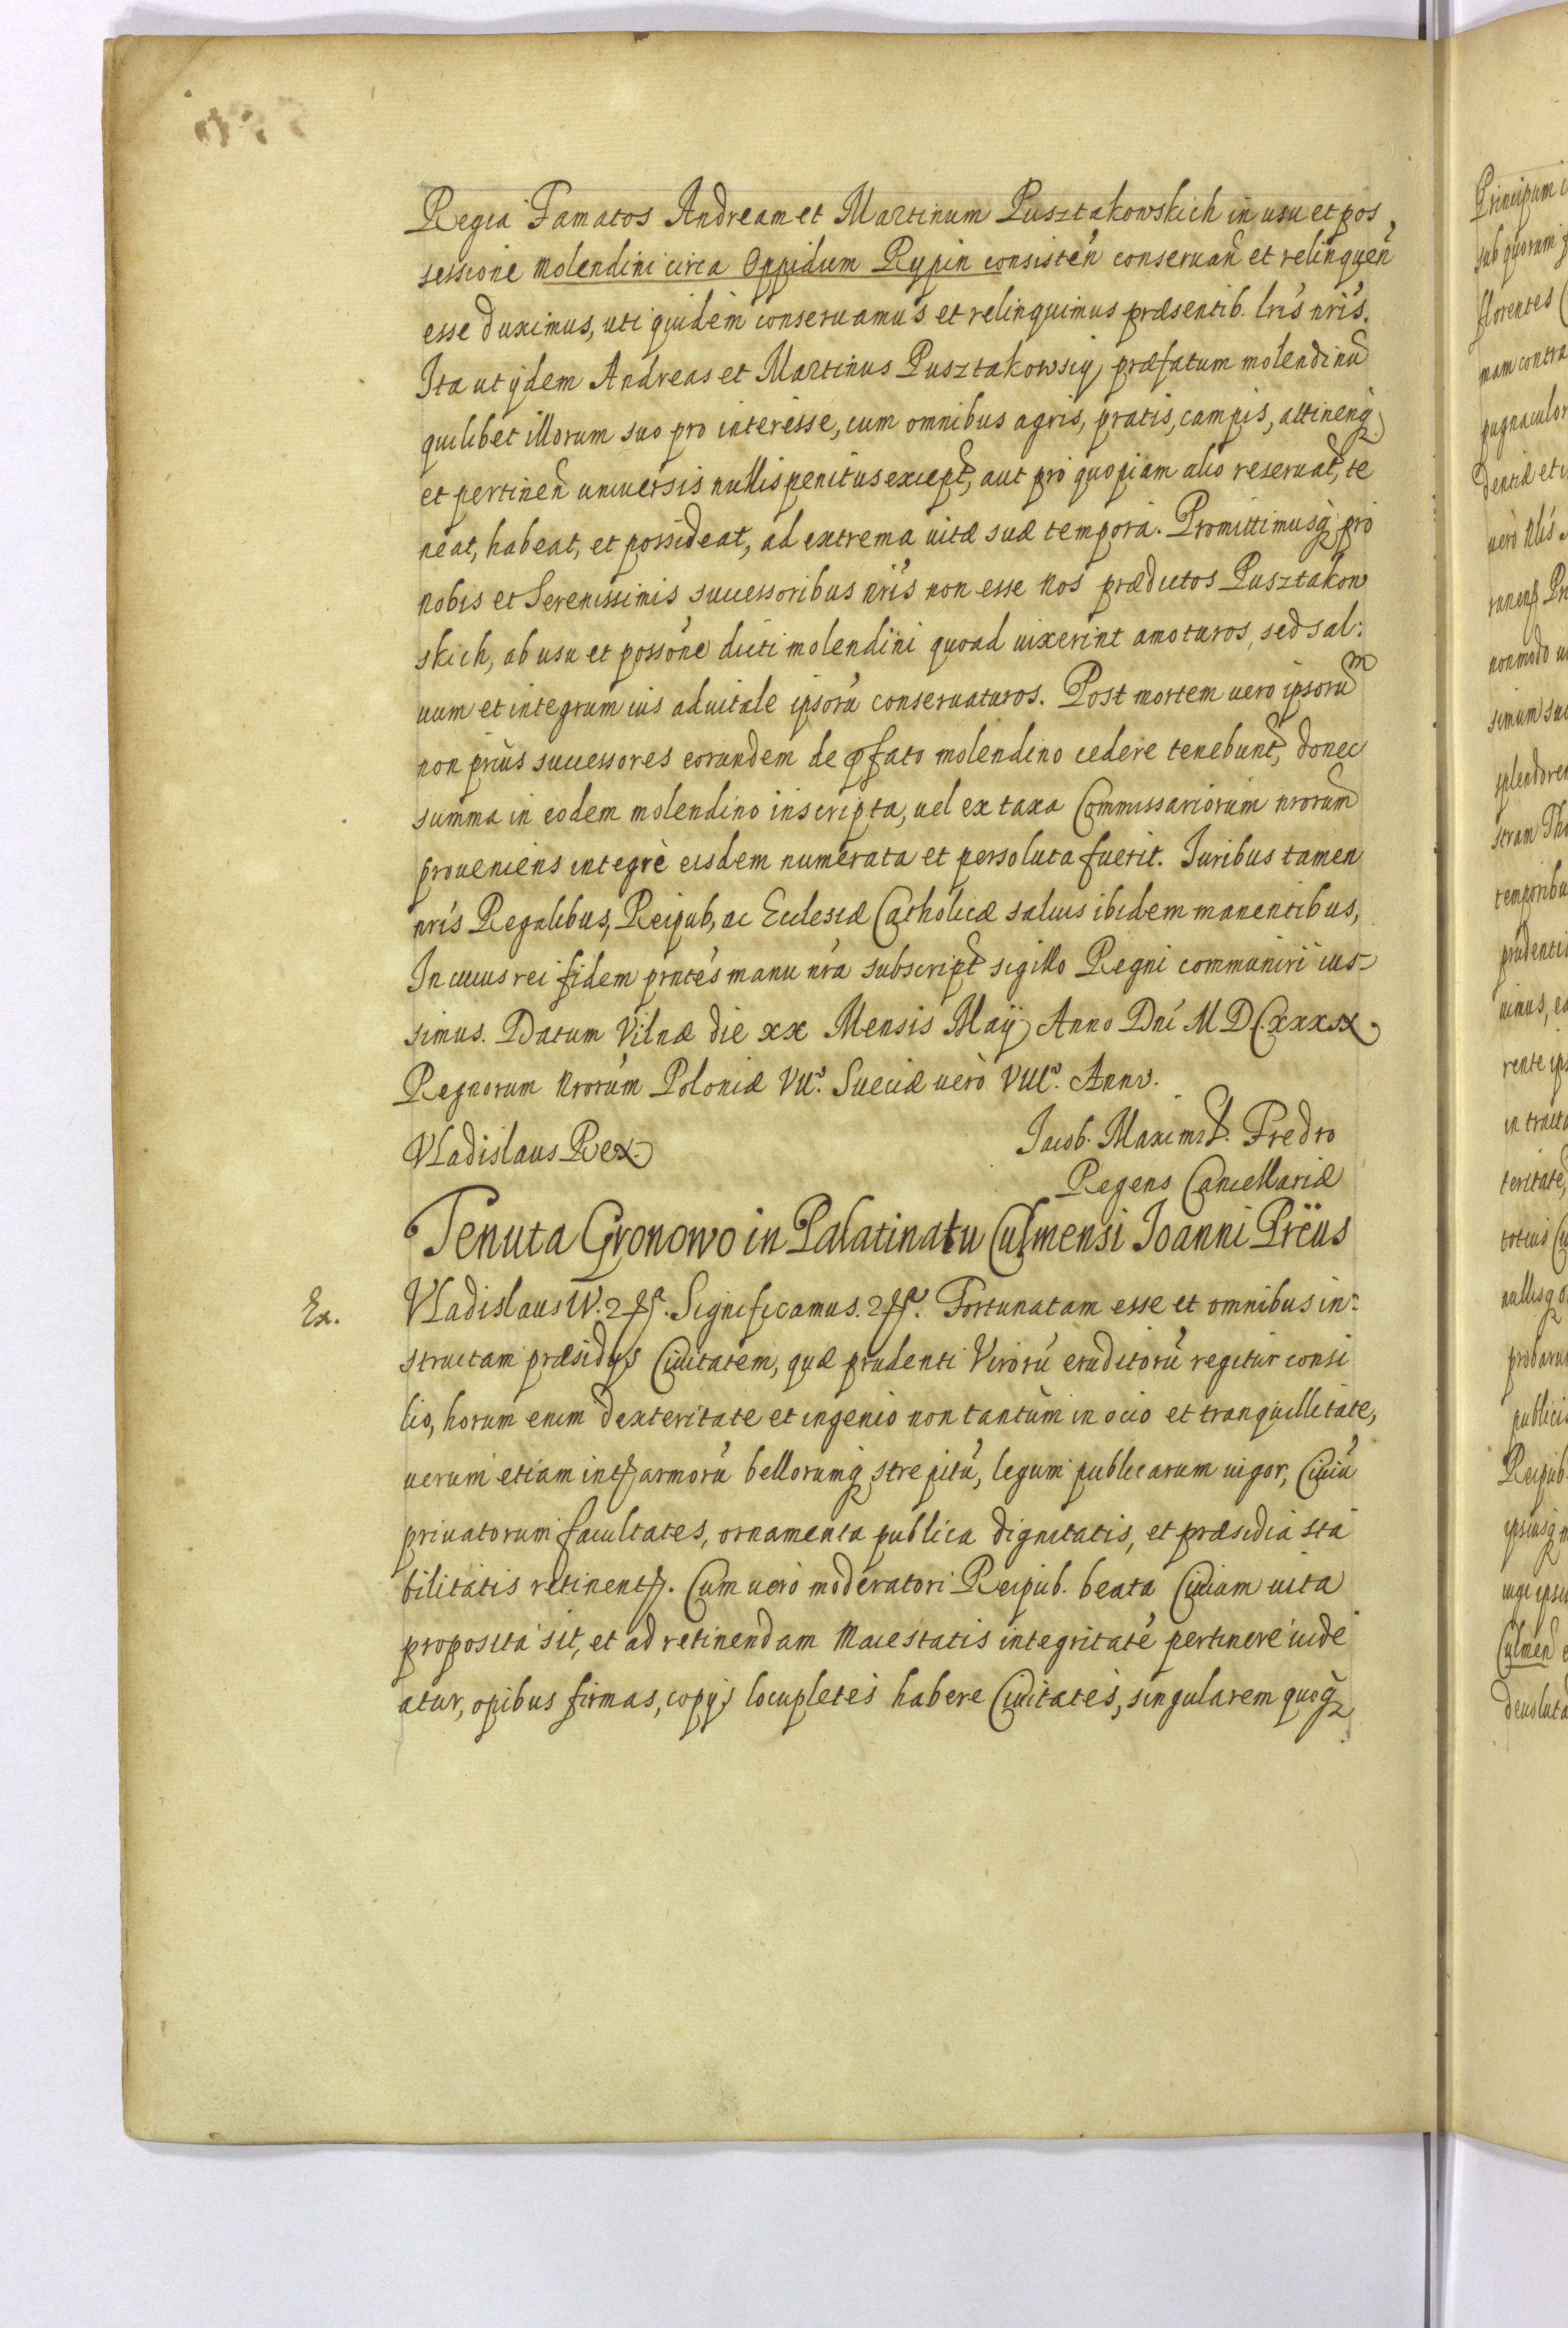 Regia Famatos Andream et Martinum Pusztakowskich in usu et pos
sessione molendini circa Oppidum Rypin consisteñ conseruañ et relinqueñ
esse duximus, uti quidem conseruamus et relinquimus præsentib. lris nris.
Ita ut ijdem Andreas et Martinus Pusztakowscij præfatum molendinũ
quilibet illorum suo pro interesse, cum omnibus agris, pratis, campis, attinenq̃
et pertineñ uniuersis nullis penitus except, aut pro quopiam alio reseruat, te
neat, habeat, et possideat, ad extrema uitæ suæ tempora. Promittimusq̃ pro
nobis et Serenissimis successoribus nris non esse nos prædictos Pusztakow
skich, ab usu et possõne dicti molendini quoad uixerint amoturos, sed sal:
uum et integrum ius aduitale ipsorũ conseruaturos. Post mortem uero ipsorum
non prius successores eorundem de pfato molendino cedere tenebunt, donec
summa in eodem molendino inscripta, uel ex taxa Commissariorum nrorum
proueniens integrè eisdem numerata et persoluta fuerit. Iuribus tamen
nris Regalibus, Reipub, ac Ecclesiæ Catholicæ saluis ibidem manentibus,
In cuius rei fidem pntes manu nra subscript sigillo Regni communiri ius-
simus. Datum Vilnæ die xx Mensis Maij Anno Dni M D C xxxix
Regnorum Nrorum Poloniæ VII.º Sueciæ uerò VIII.º Anno.
Vladislaus Rex.
Jacob. Maximil. Fredro
Regens Cancellariæ
Tenuta Gronowo in Palatinatu Culmensi Joanni Preüs
Ex.
Vladislaus IV. Significamus. Fortunatam esse et omnibus in:
structam præsidijs Ciuitatem, quæ prudenti Virorũ eruditorũ regitur consi
lio, horum enim dexteritate et ingenio non tantùm in ocio et tranquillitate,
uerum etiam int armorũ bellorumq̃ strepitũ, legum publicarum uigor, Ciuiũ
priuatorum facultates, ornamenta publica dignitatis, et præsidia sta
bilitatis retinent. Cum uerò moderatori Reipub. beata Ciuium uita
proposita sit, et ad retinendam Maiestatis integritatẽ pertinere uide
atur, opibus firmas, copijs locupletes habere Ciuitates, singularem quoq̃